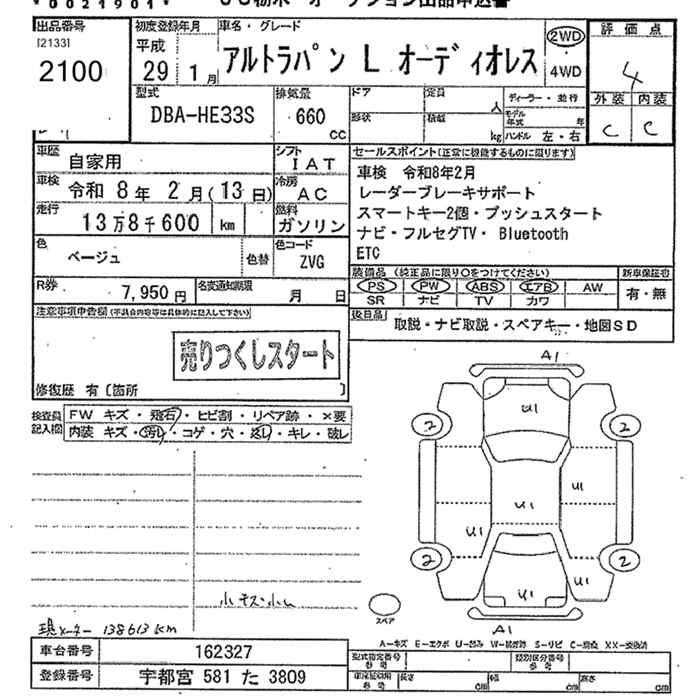 * 0021901 *
出品番号
[2133]
2100
初度登録年月
平成
29 年 1 月
車名・グレード
アルトラパン L オーディオレス
2WD
4WD
評価点
4
外装 内装
C C
型式
DBA-HE33S
排気量
660
CC
ドア
定員
人
形状
積載
kg
ディーラー・並行
モデル年式 年
ハンドル 左・右
車歴
自家用
シフト
IAT
車検
令和 8年 2月(13日)
冷房
AC
走行
13万8千600 km
燃料
ガソリン
色
ベージュ
色替
色コード
ZVG
R券
7,950円
名変通知期限
月 日
セールスポイント(正常に機能するものに限ります)
車検 令和8年2月
レーダーブレーキサポート
スマートキー2個・プッシュスタート
ナビ・フルセグTV・ Bluetooth
ETC
装備品 (純正品に限り○をつけてください)
新車保証書
PS PW ABS エアB AW
SR ナビ TV カワ
有・無
後日品
取説・ナビ取説・スペアキー・地図SD
注意事項申告欄(不具合内容等は具体的に記入して下さい)
売りつくしスタート
修復歴 有 [箇所 ]
検査員
記入欄
FW キズ・飛石・ヒビ割・リペア跡・×要
内装 キズ・汚れ・コゲ・穴・
・キレ・破レ
A1
U1
2
2
U1
U1
U1
U1
2
2
U1
U1
A1
スペア
現メーター 138613km
車台番号
162327
登録番号
宇都宮 581 た 3809
A-キズ E-エクボ U-凹み
型式指定番号
類別区分番号
長さ cm
幅 cm
高さ cm